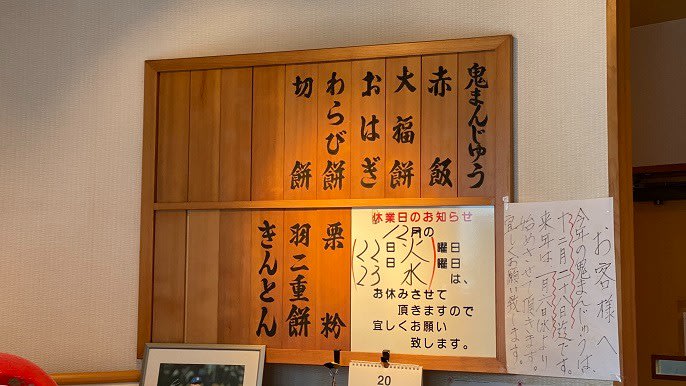 鬼まんじゅう
赤飯
大福餅
おはぎ
わらび餅
切餅
栗粉
羽二重餅
きんとん
休業日のお知らせ
12月の
22日(火)曜日
23日(水)曜日
は、
お休みさせて
頂きますので
宜しくお願い
致します。
お客様へ
今年の鬼まんじゅうは、
十二月二十八日迄です。
来年は一月六日(水)より
始めさせて頂きます。
宜しくお願い致します。
20